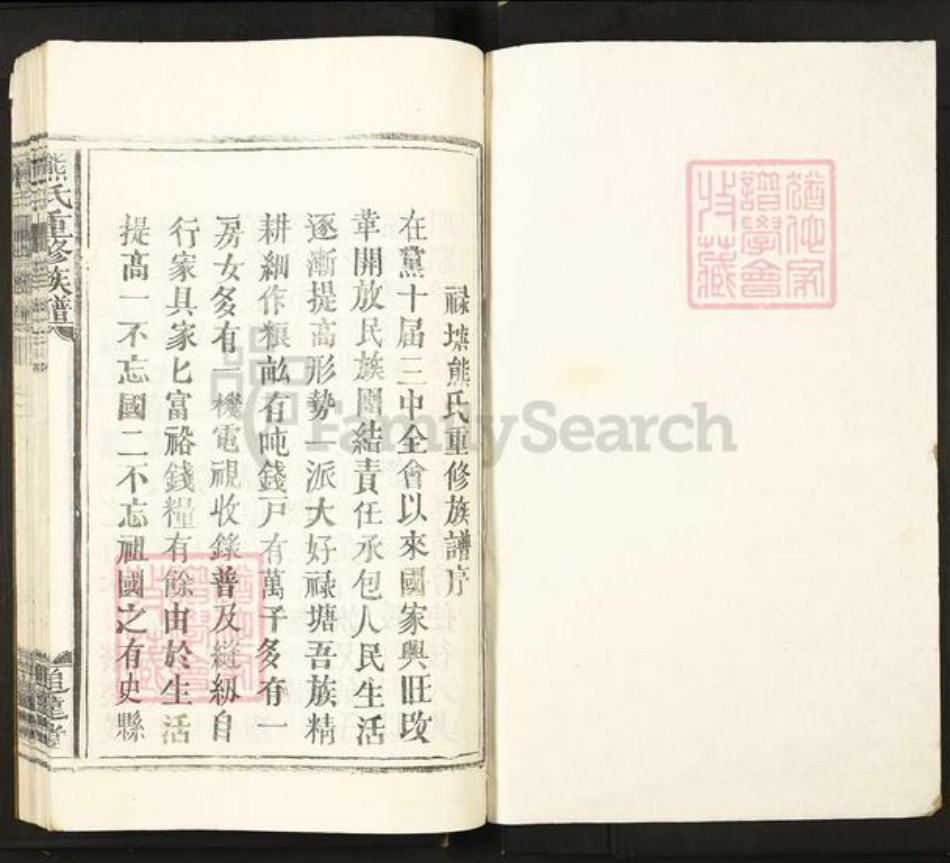 猶他家
譜學會
收藏
祿塘熊氏重修族譜序
在黨十届三中全會以來國家興旺改
革開放民族團結責任承包人民生活
逐漸提高形勢一派大好祿塘吾族精
耕細作粮畝有吨錢戸有萬子多有一
房女多有一機電視收錄普及縫紉自
行家具家匕富裕錢糧有餘由於生活
提高一不忘國二不忘祖國之有史縣
熊氏重修族譜
追遠堂
猶他家
譜學會
收藏
FamilySearch